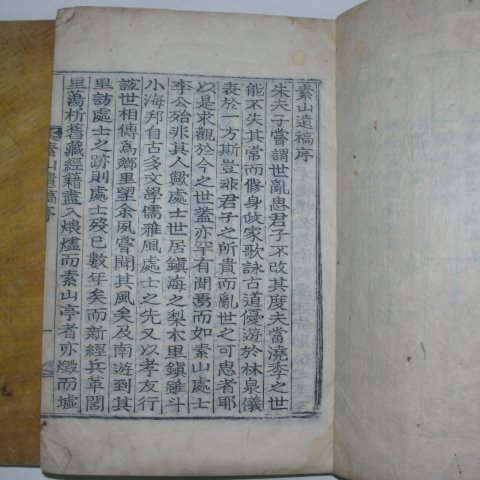 素山遺稿序
朱夫子嘗謂世亂愚君子不改其度夫當澆季之世
能不失其常而修身故家歌詠古道優遊於林泉儀
表於一方斯豈非君子之所貴而亂世之可愚者耶
以是求觀於今之世蓋亦罕有聞焉而如素山處士
李公殆非其人歟處士世居鎮海之梨木里鎮雖斗
小海邦自古多文學儒雅風處士之先又以孝友行
誼世相傳爲鄉里望余夙嘗聞其風矣及南遊到其
里訪處士之跡則處士歿已數年矣而新經兵革閭
里蕩析舊藏經籍盡入煨燼而素山亭者亦燬而墟
素山遺稿序